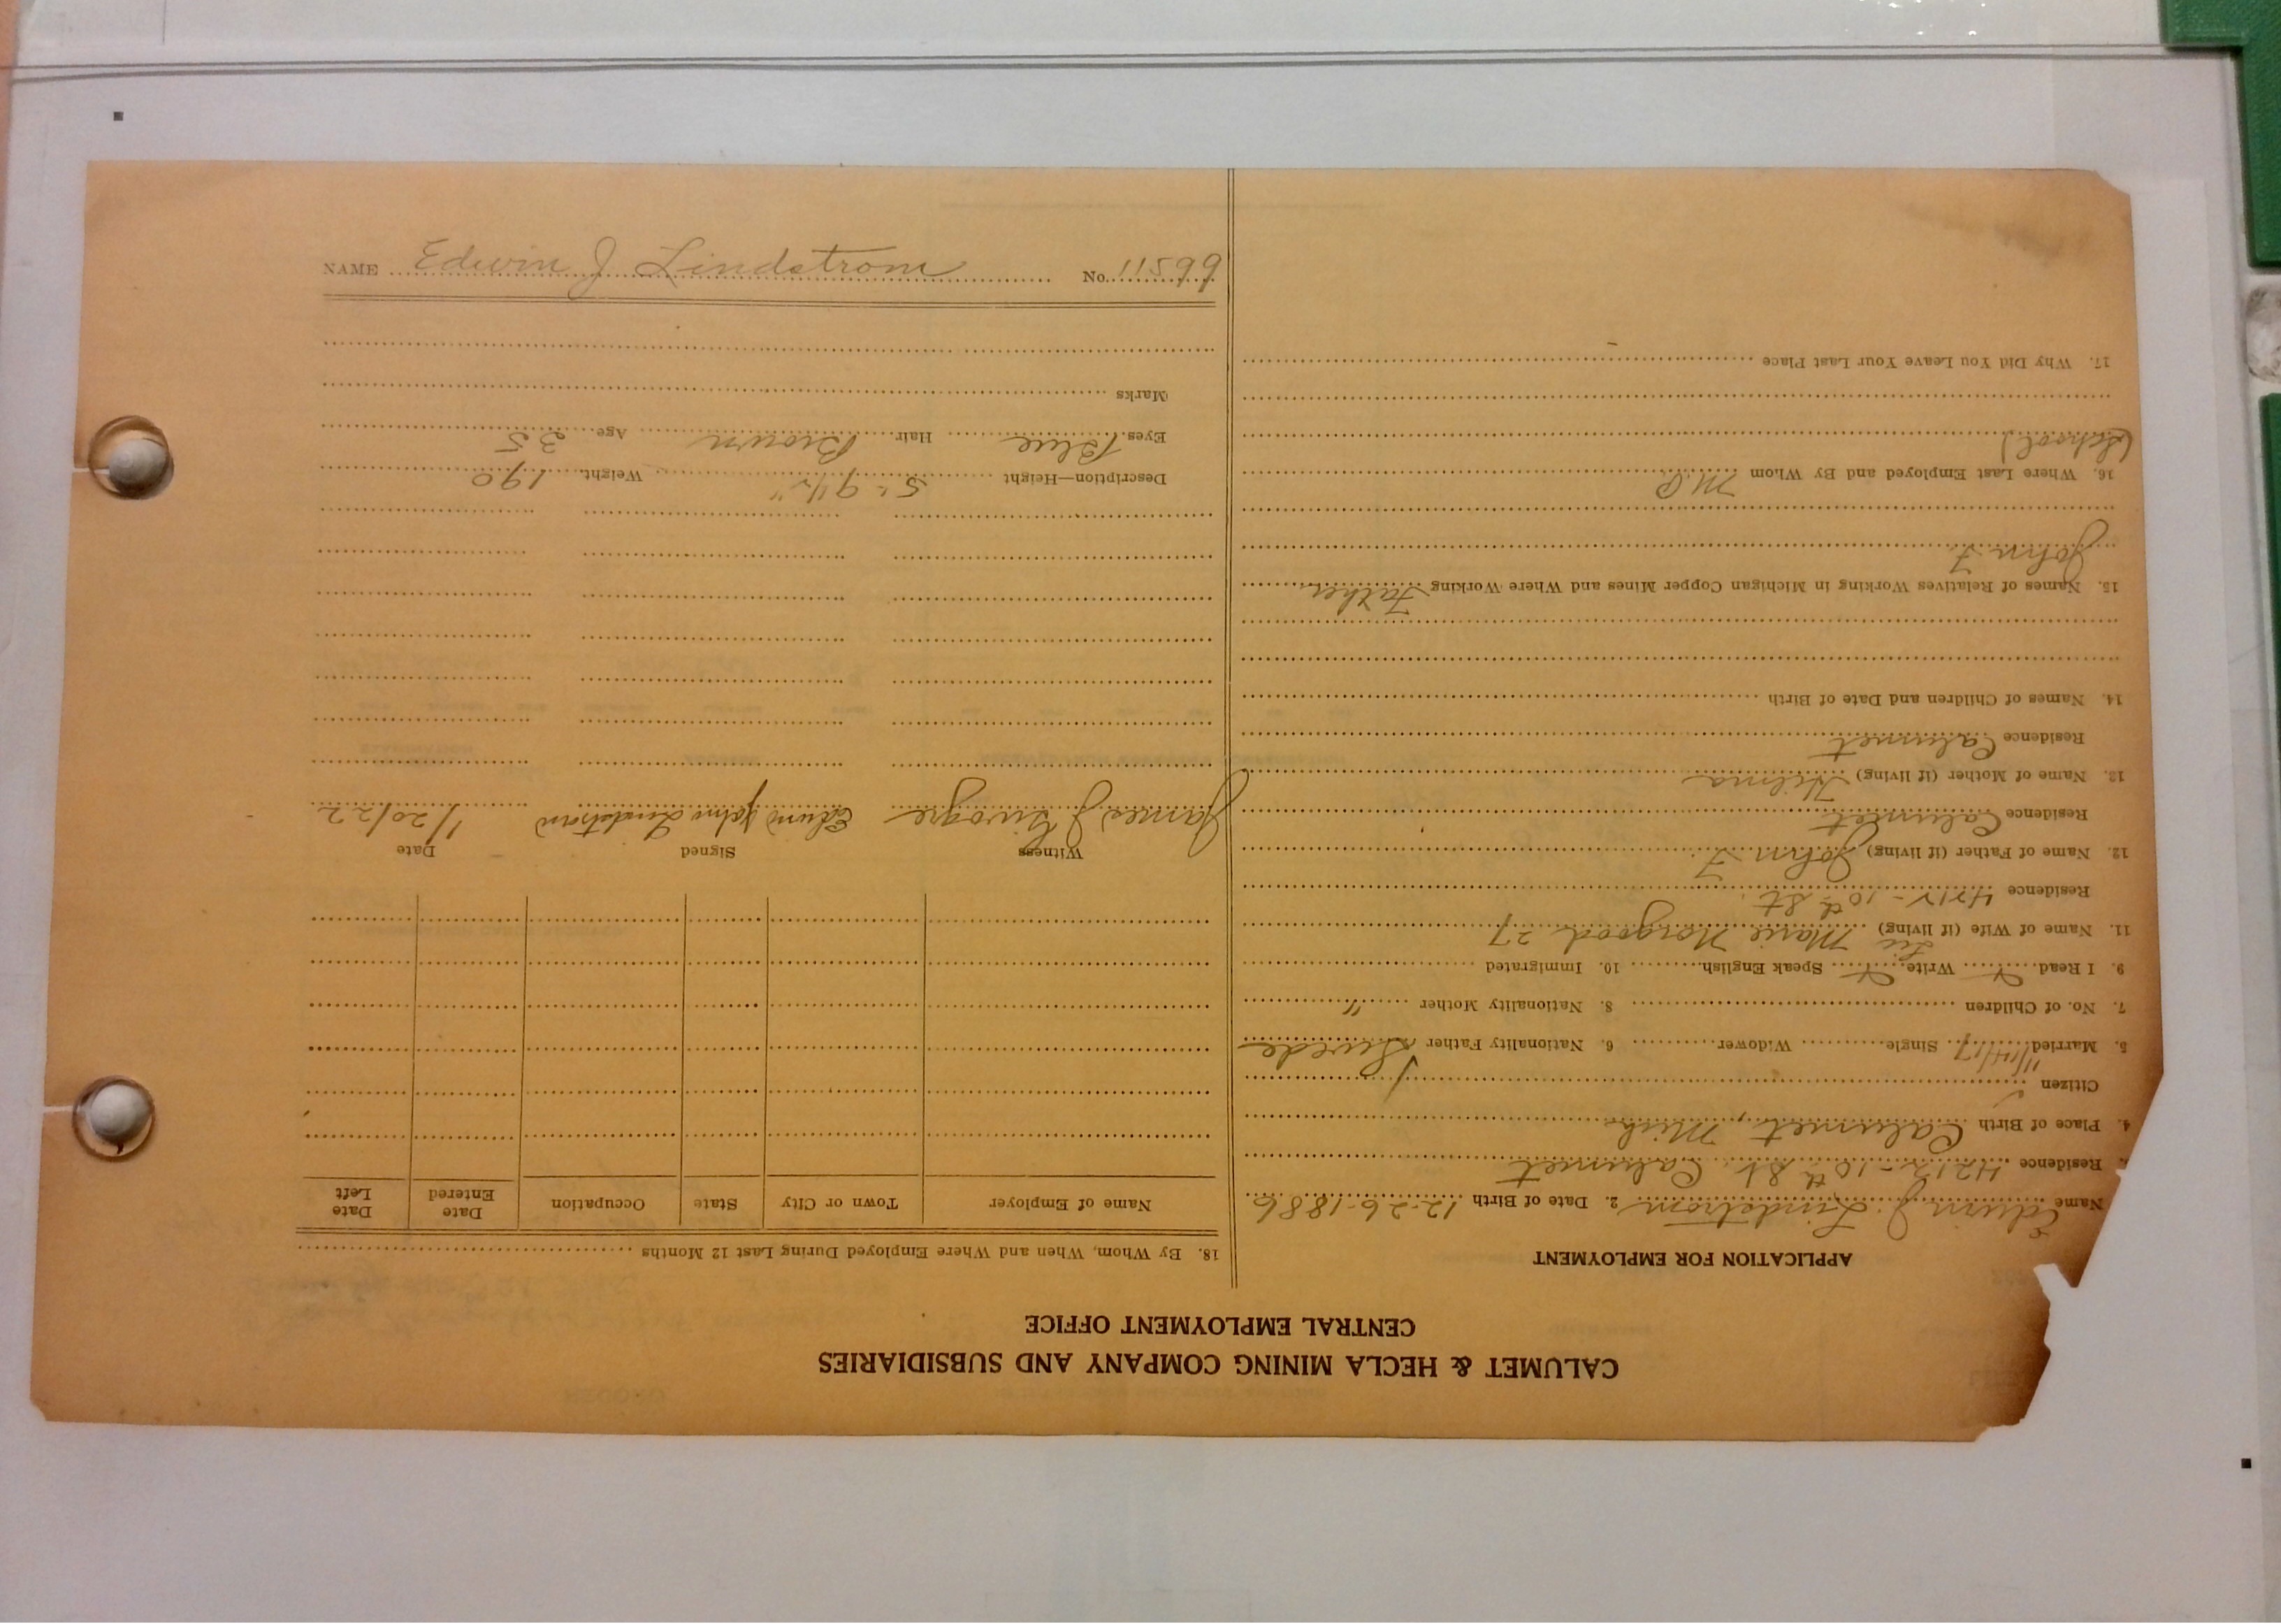 CALUMET & HECLA MINING COMPANY AND SUBSIDIARIES
CENTRAL EMPLOYMENT OFFICE
APPLICATION FOR EMPLOYMENT
Name Edwin J. Lindstrom 2. Date of Birth 12-26-1886
Residence 4212-10th St. Calumet
4. Place of Birth Calumet, Mich.
Citizen
5. Married 11/14/17 Single Widower 6. Nationality Father Swede
7. No. of Children 8. Nationality Mother "
9. I Read Write Speak English 10. Immigrated
11. Name of Wife (if living) Marie 27
Residence 4212-10th St.
12. Name of Father (if living) John F.
Residence Calumet
13. Name of Mother (if living) Hilma
Residence Calumet
14. Names of Children and Date of Birth
15. Names of Relatives Working in Michigan Copper Mines and Where Working Father
John F.
16. Where Last Employed and By Whom
(School)
17. Why Did You Leave Your Last Place
18. By Whom, When and Where Employed During Last 12 Months
Name of Employer Town or City State Occupation Date Entered Date Left
Witness Signed Date
James J Edwin John Lindstrom 1/20/22
Description—Height 5'-9 1/2" Weight 190
Eyes Blue Hair Brown Age 35
Marks
NAME Edwin J Lindstrom No. 11599